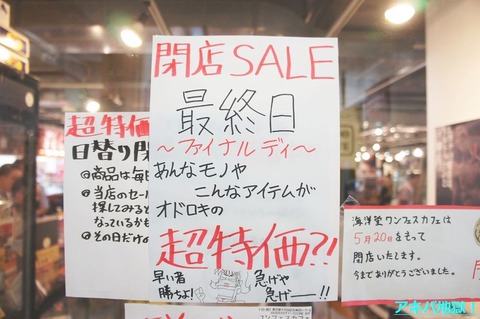 閉店SALE
最終日
～ファイナルディ～
あんなモノや
こんなアイテムが
オドロキの
超特価?!
早い者
勝ちよ!
急げや
急げー!!
超特価
日替り閉
商品は毎日
当店のセール
探してみると
なっているかも
その日だけの
海洋堂ワンフェスカフェは
5月20日をもって
閉店いたします。
今までありがとうございました。
アキバ地獄!